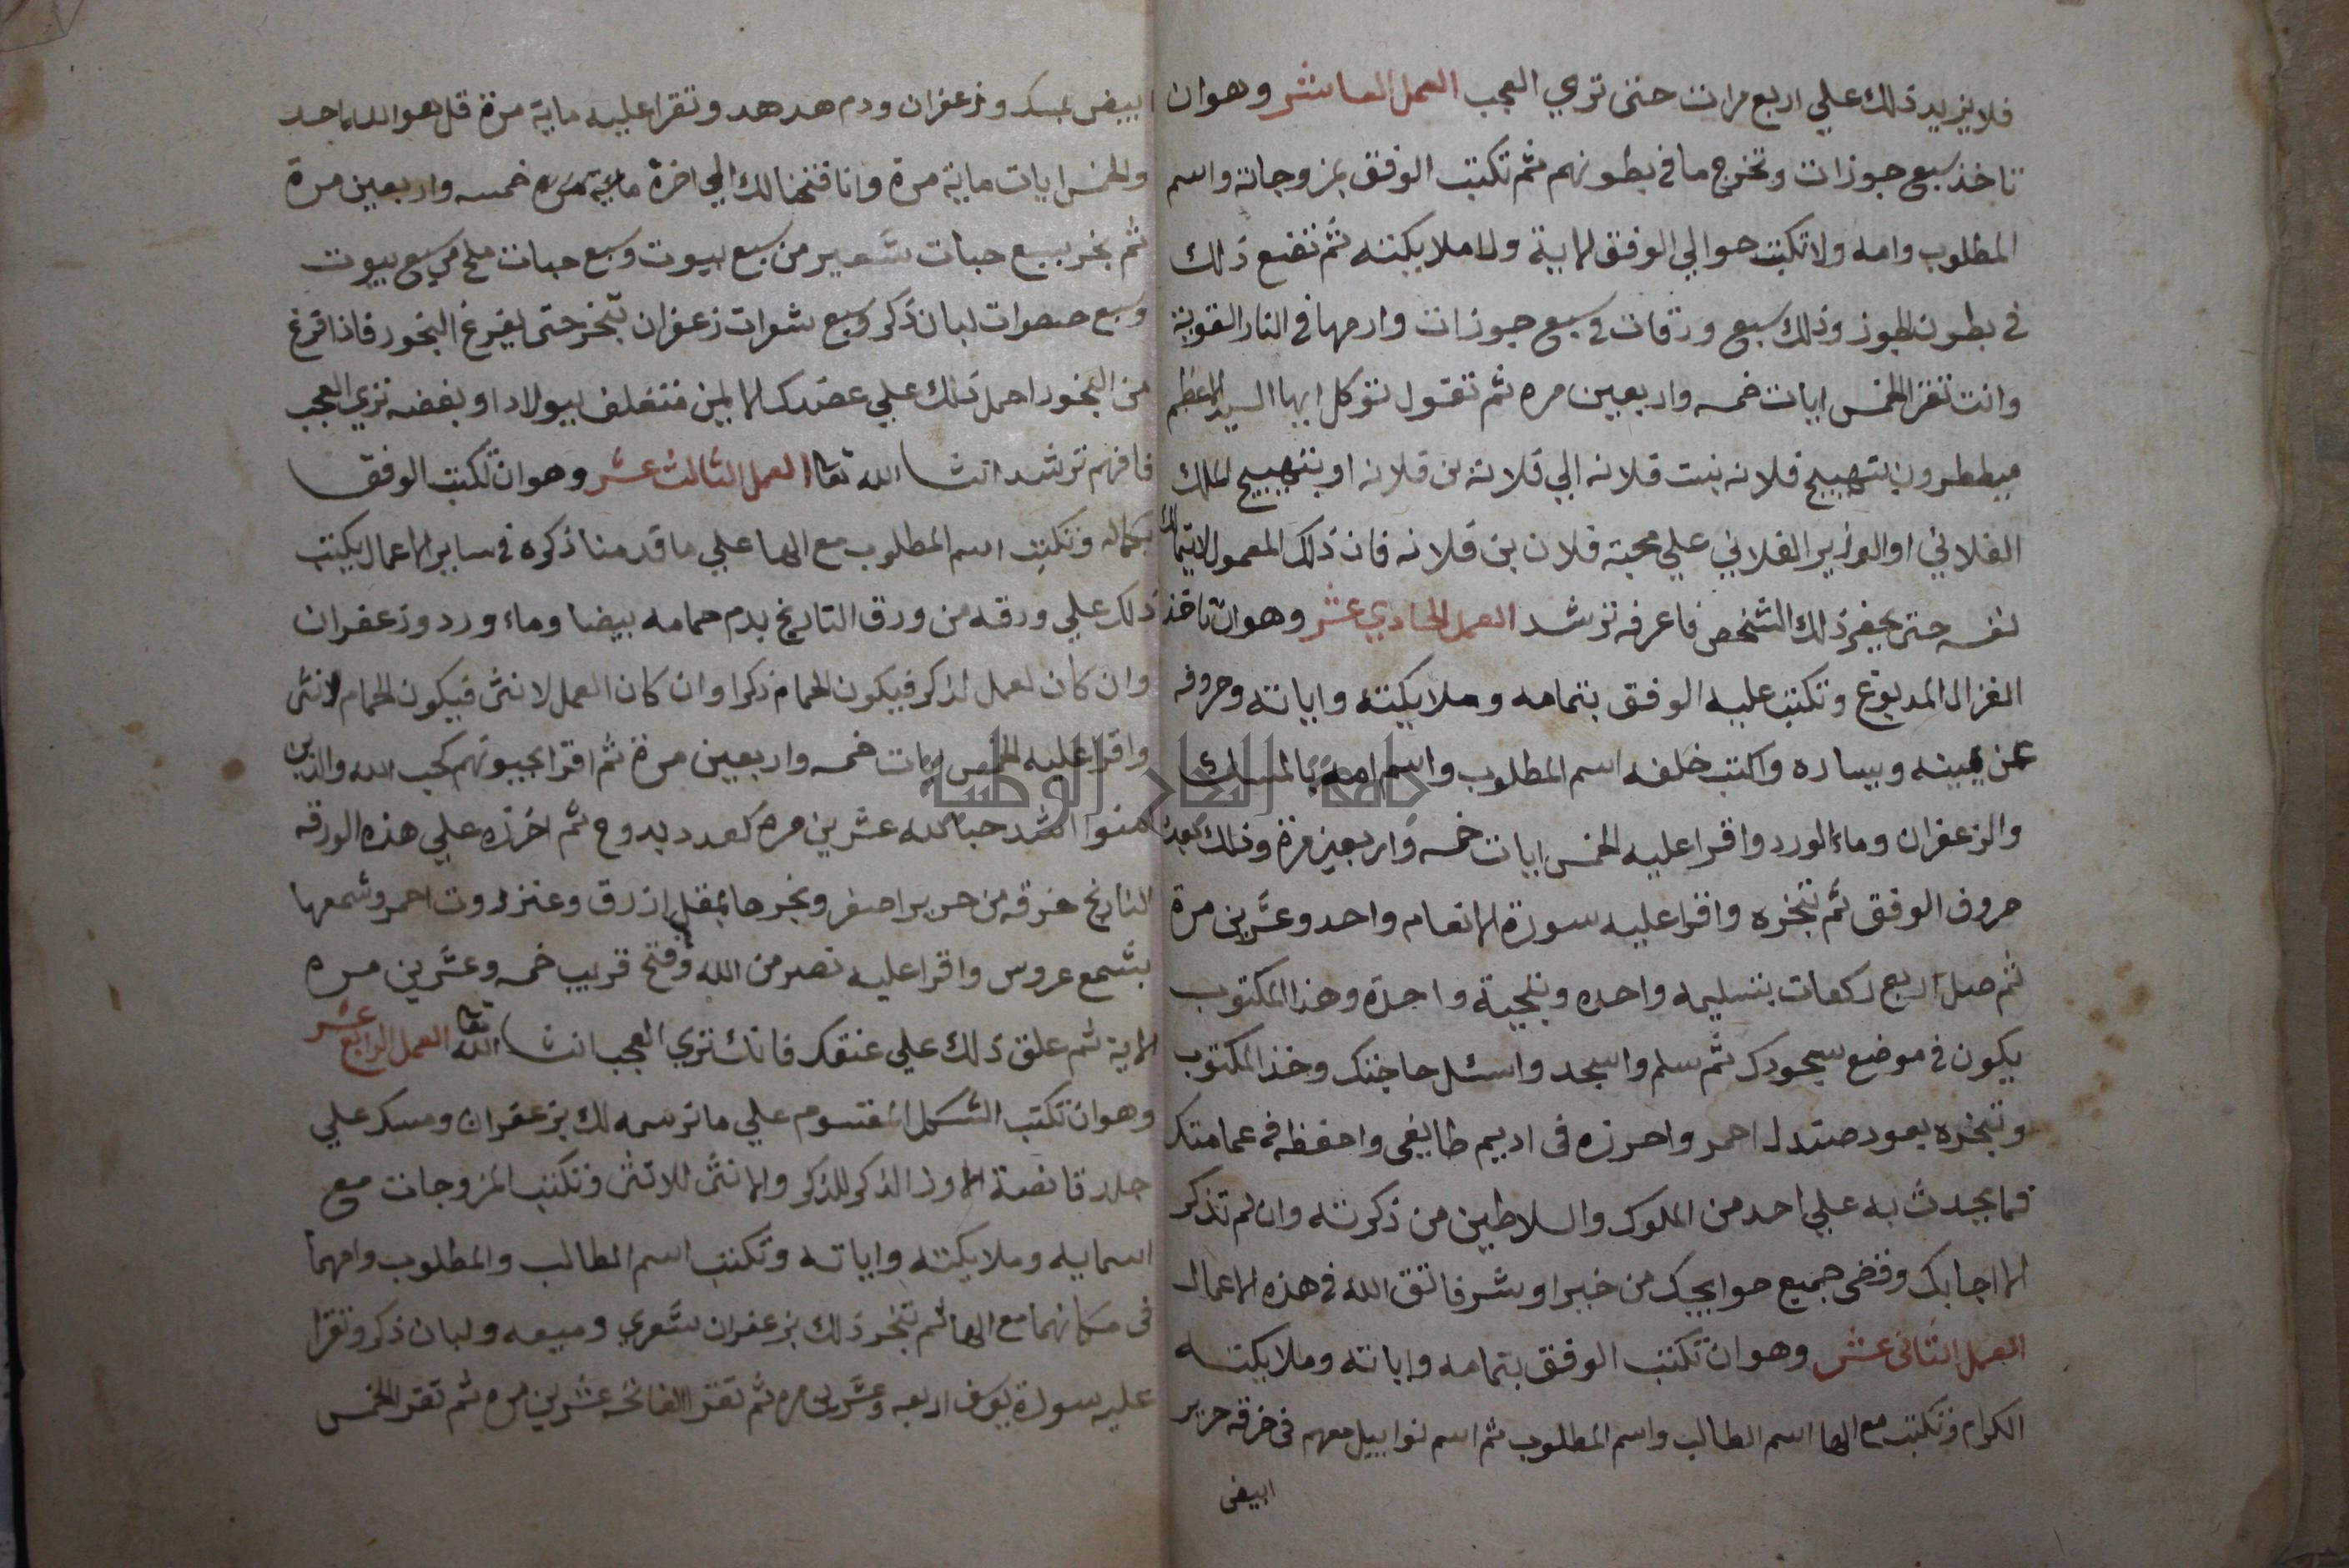 فلا يزيد ذلك علي اربع مرات حتي تري العجب العمل العاشر وهو ان
تاخذ سبع جوزات وتخرج ما في بطونهم ثم تكتب الوفق بمزوجاته واسم
المطلوب وامه ولا تكتب حوالي الوفق الاية ولا ملايكته ثم تضع ذلك
في بطون الجوز وذلك سبع ورقات في سبع جوزات وارمها في النار القوية
وانت تقرا الخمس ايات خمسه واربعين مره ثم تقول توكل ايها السيد الاعظم
ميططرون بتهييج فلانه بنت فلانه الي فلانة بن فلانه او بتهييج الملك
الفلاني او الوزير الفلاني علي محبة فلان بن فلانه فان ذلك المعمول لا يتمالك
نفسه حتي يحضر ذلك الشخص فاعرفه ترشد العمل الحادي عشر وهو ان تاخذ
الغزال المدبوغ وتكتب عليه الوفق بتمامه وملايكته واياته وحروفه
عن يمينه ويساره واكتب خلفه اسم المطلوب واسم امه بالمسك
والزعفران وماء الورد واقرا عليه الخمس ايات خمسه واربعين مرة وذلك بعدد
حروف الوفق ثم تبخره واقرا عليه سورة الانعام واحد وعشرين مرة
ثم صل اربع ركعات بتسليمه واحده وبتحية واحدة وهذا المكتوب
يكون في موضع سجودك ثم سلم واسجد واسئل حاجتك وخذ المكتوب
وتبخره بعود صندل احمر واحرزه في اديم طايفي واحفظه في عمامتك
فما يحدث به علي احد من الملوك والسلاطين من ذكرته وان لم تذكر
الا اجابك وقضي جميع حوايجك من خير او شر فاتق الله في هذه الاعمال
العمل الثاني عشر وهو ان تكتب الوفق بتمامه واياته وملايكته
الكرام وتكتب مع الها اسم الطالب واسم المطلوب ثم اسم نواييل معهم في خرقه حرير
ابيض
ابيض بمسك وزعفران ودم هدهد وتقرا عليه ماية مرة قل هو الله احد
والخمس ايات ماية مرة وانا فتحنا لك الي اخرة ماية مره خمسه واربعين مرة
ثم بخر بسبع حبات شعير من سبع بيوت وسبع حبات ملح من سبع بيوت
وسبع حصوات لبان ذكر وسبع شعرات زعفران تبخر حتي يفرغ البخور فاذا فرغ
من البخور احمل ذلك علي عضدك الايمن متغلف ببولاد او بفضه تري العجب
فافهم ترشد انشا الله تعا العمل الثالث عشر وهو ان تكتب الوفق
بكماله وتكتب اسم المطلوب مع الها علي ما قدمنا ذكره في ساير الاعمال يكتب
ذلك علي ورقه من ورق التاريخ بدم حمامه بيضا وماء ورد وزعفران
وان كان لعمل لذكر فيكون الحمام ذكرا وان كان العمل لانثي فيكون الحمام لانثي
واقرا عليه الخمس ايات خمسه واربعين مرة ثم اقرا يحبونهم كحب الله والذين
امنوا اشد حبا لله عشرين مره كعدد بدوح ثم احرزه علي هذه الورقه
التاريخ خرقه من حرير اصفر وبخرها بمقل ازرق وعنزروت احمر وشمعها
بشمع عروس واقرا عليه نصر من الله وفتح قريب خمسه وعشرين مره
الاية ثم علق ذلك علي عنقك فانك تري العجب انشا الله تعا العمل الرابع عشر
وهو ان تكتب الشكل المقسوم علي ما نرسمه لك بزعفران ومسك علي
جلد قانصة الاوز الذكر للذكر والانثي للانثي وتكتب المزوجات مع
اسمايه وملايكته واياته وتكتب اسم الطالب والمطلوب وامهما
في مكانهما مع الها ثم تبخر ذلك بزعفران شعري وميعه ولبان ذكر وتقرا
عليه سورة يوسف اربعه وعشرين مره ثم تقرا الفاتحه عشرين مره ثم تقر الخمس
جامعة النجاح الوطنية